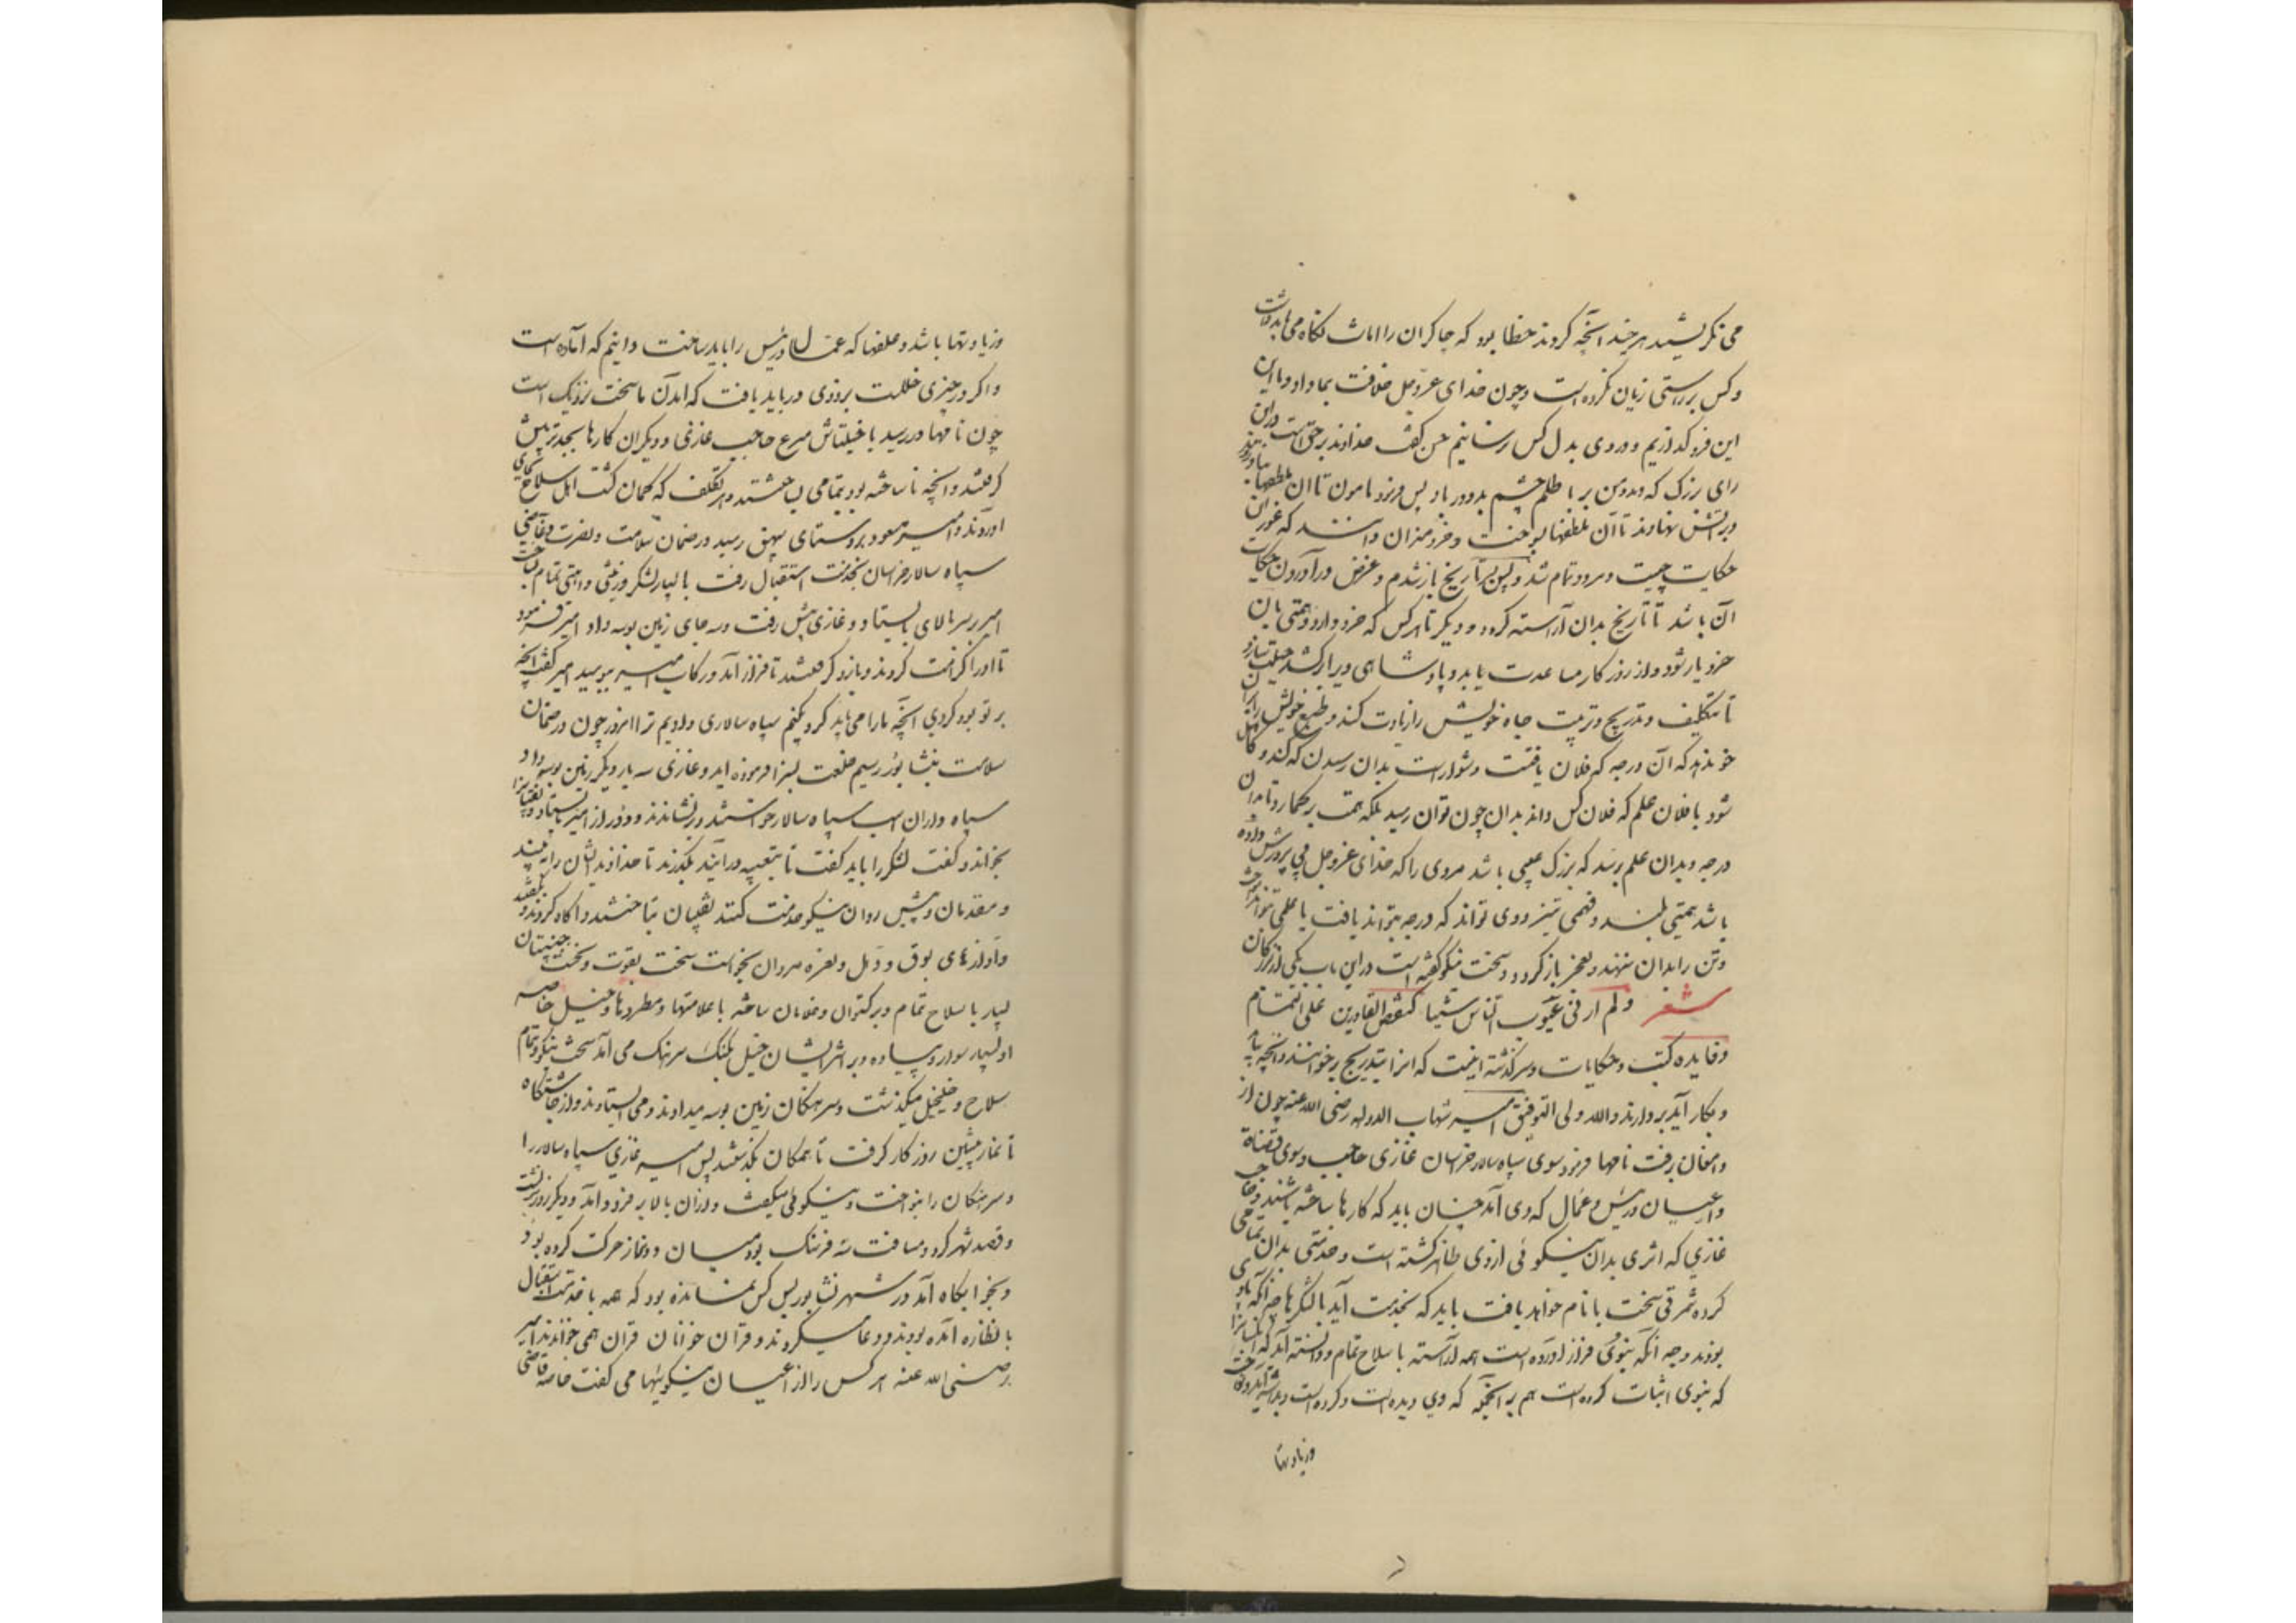 می نگریستید هرچند آنچه کردند خطا بود که چاکران را امانت نگاه می باید داشت
و کس بر راستی زیان نکرده است و چون خدای عزوجل خلافت بما داد و ما این
این فرو گذاریم و دردی بدل کس نرسانیم حسن گفت خداوند بر حق است در این
رای بزرگ که دید و من بر باطلم چشم بد دور باد پس فرمود مامون تا آن ملطفها بیاوردند
و بر آتش نهادند تا آن ملطفها بسوخت و خردمندان دانند که غور این
حکایت چیست و هر دو تمام شد و پس بر تاریخ باز شدم و غرض در آوردن حکایت
آن باشد تا تاریخ بدان آراسته گردد و دیگر تا هر کس که خرد دارد و همتی با آن
خرد یار شود و از روزگار مساعدت یابد و پادشاهی ویرا برکشد حیلت سازد
تا بتکلیف و تدریج و ترتیب جاه خویش را زیادت کند و طبع خویش را بر آن
خو ندهد که آن درجه که فلان یافتست دشوار است بدان رسیدن که کند و کاهل
شود یا فلان علم که فلان کس داند بدان چون توان رسید بلکه همت برگمارد تا بدان
درجه و بدان علم برسد که بزرگ عیبی باشد مردی را که خدای عزوجل بی پرورش داده
باشد همتی بلند و فهمی تیز و وی تواند که درجه بتواند یافت یا علمی بتواند آموخت
و تن را بدان ننهد و بعجز باز گردد و سخت نیکو گفته است در این باب یکی از بزرگان
شعر ولم ار فی عیوب الناس شیئا کنقص القادرین علی التمام
و فایده کتب و حکایات و سرگذشته اینست که آنرا بتدریج برخوانند و آنچه باید
و بکار آید بردارند والله ولی التوفیق امیر شهاب الدوله رضی الله عنه چون از
دامغان برفت نامها فرمود سوی سپاه سالار خراسان غازی حاجب و سوی قضاة
و اعیان و رئیس و عمال که وی آمد چنان باید که کارها ساخته باشند و حاجب
غازی که اثری بدان نیکوئی از وی ظاهر گشته است و خدمتی بدان تمامی
کرده ثمرتی سخت با نام خواهد یافت باید که بخدمت آید با لشکرها چه آنکه با وی
بودند و چه آنکه بنوی فراز آورده است همه آراسته با سلاح تمام و دانسته آید که آنرا
که بنوی اثبات کرده است هم بر آنجمله که وی دیده است و کرده است
و زیادتها
و زیادتها باشد و علفها که عمال و رئیس را باید ساخت دانیم که آماده است
و اگر در چیزی خللست بزودی درباید یافت که آمدن ما سخت نزدیک است
چون نامها در رسید با خیلتاش مسرع حاجب غازی و دیگران کارها بجدتر پیش
گرفتند و آنچه ناساخته بود بتمامی بساختند و هر تکلف که گمان گشت اهل سلاح بجای
آوردند و امیر مسعود بروستای بیهق رسید در ضمان سلامت و نصرت و غازی
سپاه سالار خراسان بخدمت استقبال رفت با بسیار لشکر و زینتی و اهبتی تمام بساخت
امیر بر سر بالای بایستاد و غازی پیش رفت و سه جای زمین بوسه داد امیر فرمود
تا او را کرامت کردند و بازو گرفتند تا فراز آمد و رکاب امیر ببوسید امیر گفت آنچه
بر تو بود کردی آنچه ما را می باید کرد بکنیم سپاه سالاری دادیم ترا امروز چون در ضمان
سلامت بنشابور رسیم خلعت بسزا فرموده آید و غازی سه بار دیگر زمین بوسه داد
سپاه داران اسب سپاه سالار خواستند و برنشاندند و دور از امیر بایستاد و نقیبانرا
بخواند و گفت لشکر را باید گفت تا بتعبیه درآیند بگذرند تا خداوند ایشان را به بیند
و مقدمان و پیش روان نیکو خدمت کنند نقیبان بتاختند و آگاه کردند و بگفتند
و آوازهای بوق و دهل و نعره مردان بخواست سخت بقوت و نخست جنیبتان
بسیار با سلاح تمام و برگستوان و غلامان ساخته با علامتها و مطردها و خیل خاصه
او بسیار سوار و پیاده و بر اثر ایشان خیل یک یک سرهنگ می آمد سخت نیکو و تمام
سلاح و خیل خیل میگذشت و سرهنگان زمین بوسه میدادند و می ایستادند و از چاشتگاه
تا نماز پیشین روزگار گرفت تا همگان بگذشتند پس امیر غازی سپاه سالار را
و سرهنگان را بنواخت و نیکوئی گفت و از آن بالا بر فرود آمد و دیگر روز برنشست
و قصد شهر کرد و مسافت سه فرسنگ بود میان دو نماز حرکت کرده بود
و بخوابگاه آمد در شهر نشابور بس کس نمانده بود که همه بخدمت استقبال
یا نظاره آمده بودند و دعا میکردند و قرآن خوانان قرآن همی خواندند امیر
رضی الله عنه هر کس را از اعیان نیکوئیها می گفت خاصه قاضی